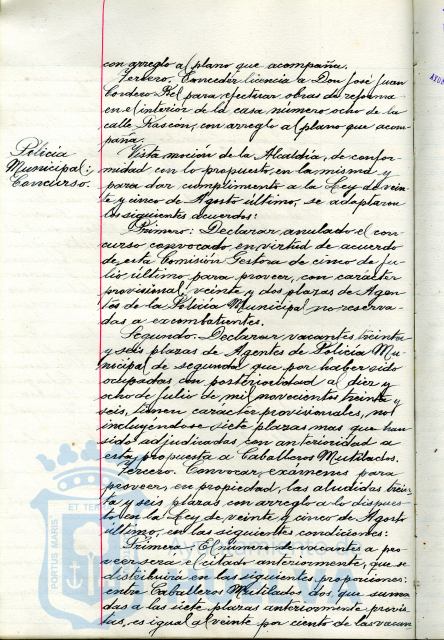 con arreglo al plano que acompaña.
Tercero. Conceder licencia a Don José Juan
Cordero Rel para efectuar obras de reforma
en el interior de la casa número ocho de la
calle Rascón, con arreglo al plano que acom-
paña.
Policía
Municipal:
Concurso.
Vista moción de la Alcaldía, de confor-
midad con lo propuesto en la misma y
para dar cumplimento a la Ley de vein-
te y cinco de Agosto último, se adoptaron
los siguientes acuerdos:
Primero: Declarar anulado el con-
curso convocado en virtud de acuerdo
de esta Comisión Gestora de cinco de Ju-
lio último para proveer, con carácter
provisional, veinte y dos plazas de Agen-
tes de la Policía Municipal no reserva-
das a excombatientes.
Segundo. Declarar vacantes treinta
y seis plazas de Agentes de Policía Mu-
nicipal de segunda que por haber sido
ocupadas con posterioridad al diez y
ocho de Julio de mil novecientos treinta y
seis, tienen carácter provisionales, no
incluyéndose siete plazas mas que han
sido adjudicadas con anterioridad a
esta propuesta a Caballeros Mutilados.
Tercero. Convocar, exámenes para
proveer, en propiedad, las aludidas trein-
ta y seis plazas, con arreglo a lo dispues-
to en la Ley de veinte y cinco de Agosto
último, en las siguientes condiciones:
Primera: El número de vacantes a pro-
veer será el citado anteriormente, que se
distribuirá en las siguientes proporciones:
entre Caballeros Mutilados dos que suma-
das a las siete plazas anteriormente provis-
tas, es igual al veinte por ciento de las vacan
PORTUS MARIS
ET TER